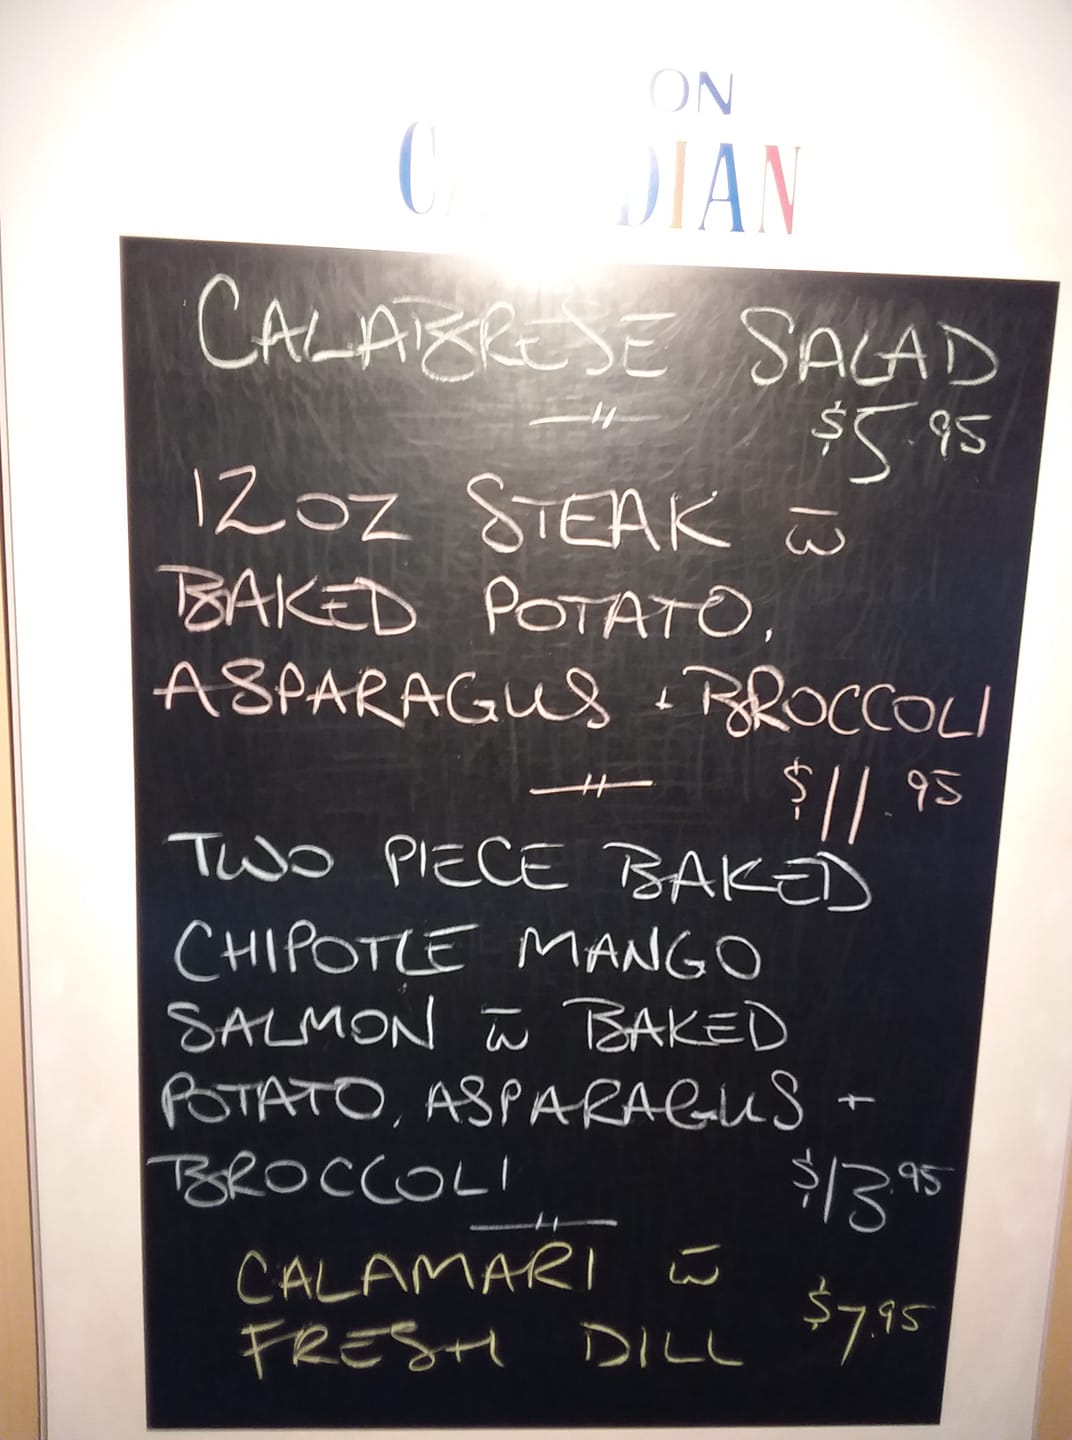 ON
DIAN
CALABRESE SALAD
$5.95
12 OZ STEAK w̄
BAKED POTATO,
ASPARAGUS + BROCCOLI
$11.95
TWO PIECE BAKED
CHIPOTLE MANGO
SALMON w̄ BAKED
POTATO, ASPARAGUS +
BROCCOLI $13.95
CALAMARI w̄
FRESH DILL $7.95